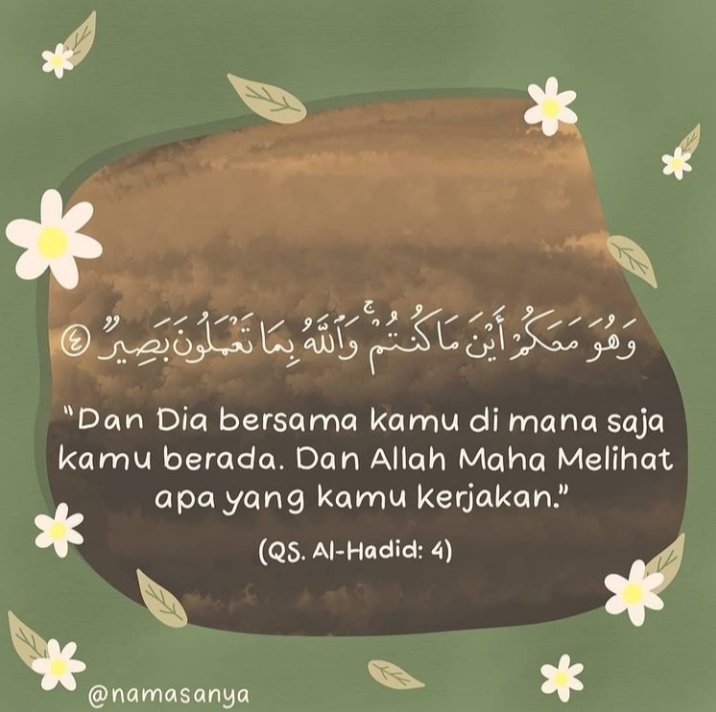 وَهُوَ مَعَكُمْ أَيْنَ مَا كُنتُمْ ۚ وَٱللَّهُ بِمَا تَعْمَلُونَ بَصِيرٌ ٤
"Dan Dia bersama kamu di mana saja
kamu berada. Dan Allah Maha Melihat
apa yang kamu kerjakan."
(QS. Al-Hadid: 4)
@namasanya